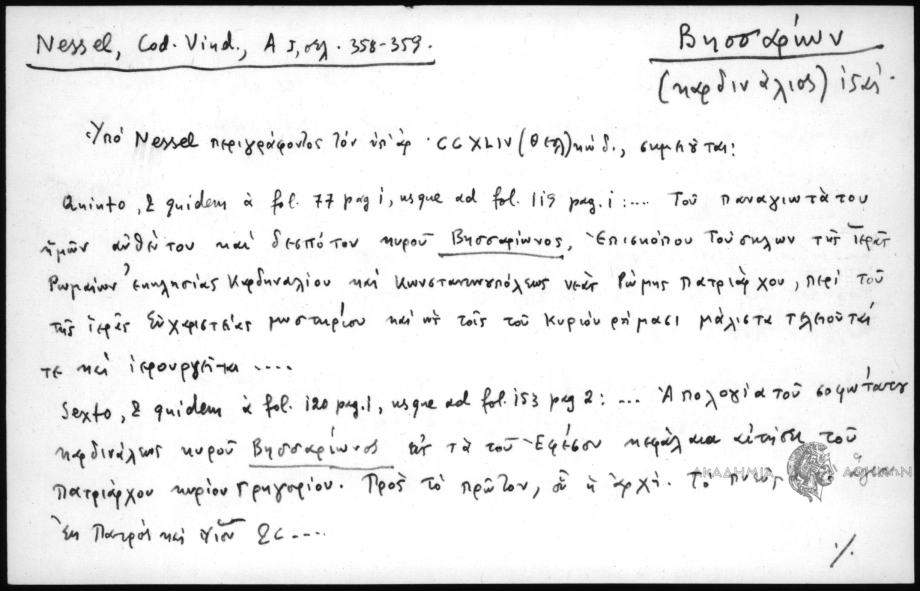 Nessel, Cod. Vind., A 5, σελ. 358-359.
Βησσαρίων
(καρδινάλιος)
Ὑπό Nessel περιγράφοντος τόν ὑπ' ἀρ. CCXLIV (θεολ) κώδ., σημειοῦται:
Quinto, & quidem à fol. 77 pag 1, usque ad fol. 119 pag. 1: .... Τοῦ παναγιωτάτου
ἡμῶν αὐθέντου καὶ δεσπότου κυροῦ Βησσαρίωνος, Ἐπισκόπου Τούσκλων τῆς ἱερᾶς
Ρωμαίων Ἐκκλησίας Καρδηναλίου καὶ Κωνσταντινουπόλεως νέας Ρώμης Πατριάρχου, περί τοῦ
τῆς ἱερᾶς Εὐχαριστείας μυστηρίου καὶ ὡς τοῖς τοῦ Κυρίου ρήμασι μάλιστα τελειοῦταί
τε καὶ ἱερουργεῖται ....
Sexto, & quidem à fol. 120 pag. 1, usque ad fol. 153 pag 2: ... Ἀπολογία τοῦ σοφωτάτου
καρδινάλεως κυροῦ Βησσαρίωνος εἰς τὰ τοῦ Ἐφέσου κεφάλαια αἰτήσει τοῦ
Πατριάρχου κυρίου Γρηγορίου. Πρὸς τὸ πρῶτον, οὗ ἡ ἀρχή. Τό
Ἐκ Πατρός καὶ υἱοῦ &c ....
ΑΚΑΔΗΜΙΑ ΑΘΗΝΩΝ
./.